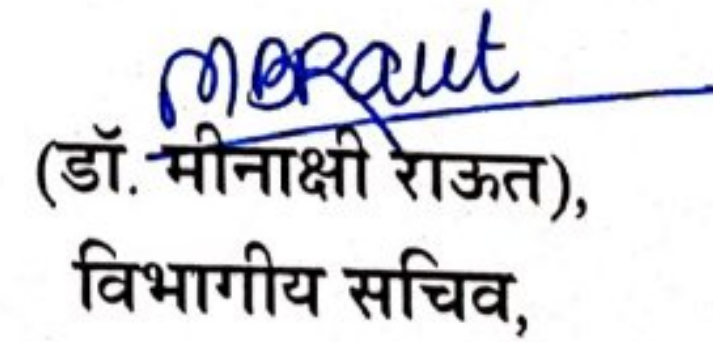 MBRaut
(डॉ. मीनाक्षी राऊत),
विभागीय सचिव,